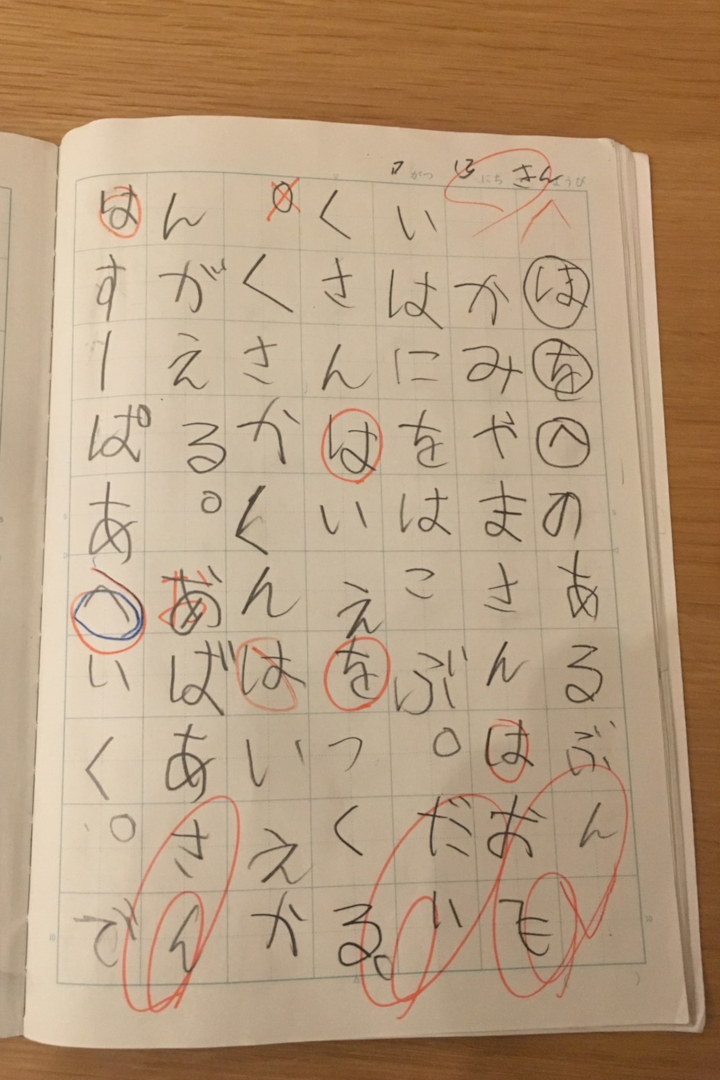 7がつ13にちきんようび
はをへのあるぶん
かみやまさんはおも
いはにをはこぶ。だい
くさんはいえをつくる。
。くさかくんはいえか
んがえる。おばあさん
はすーぱあへいく。で